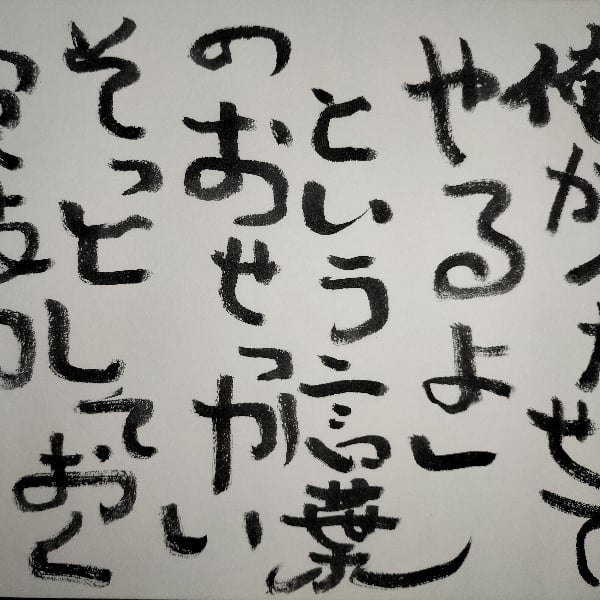 俺が勝たせて
やるよ」
という言葉
のおせっかい
そっとしておく